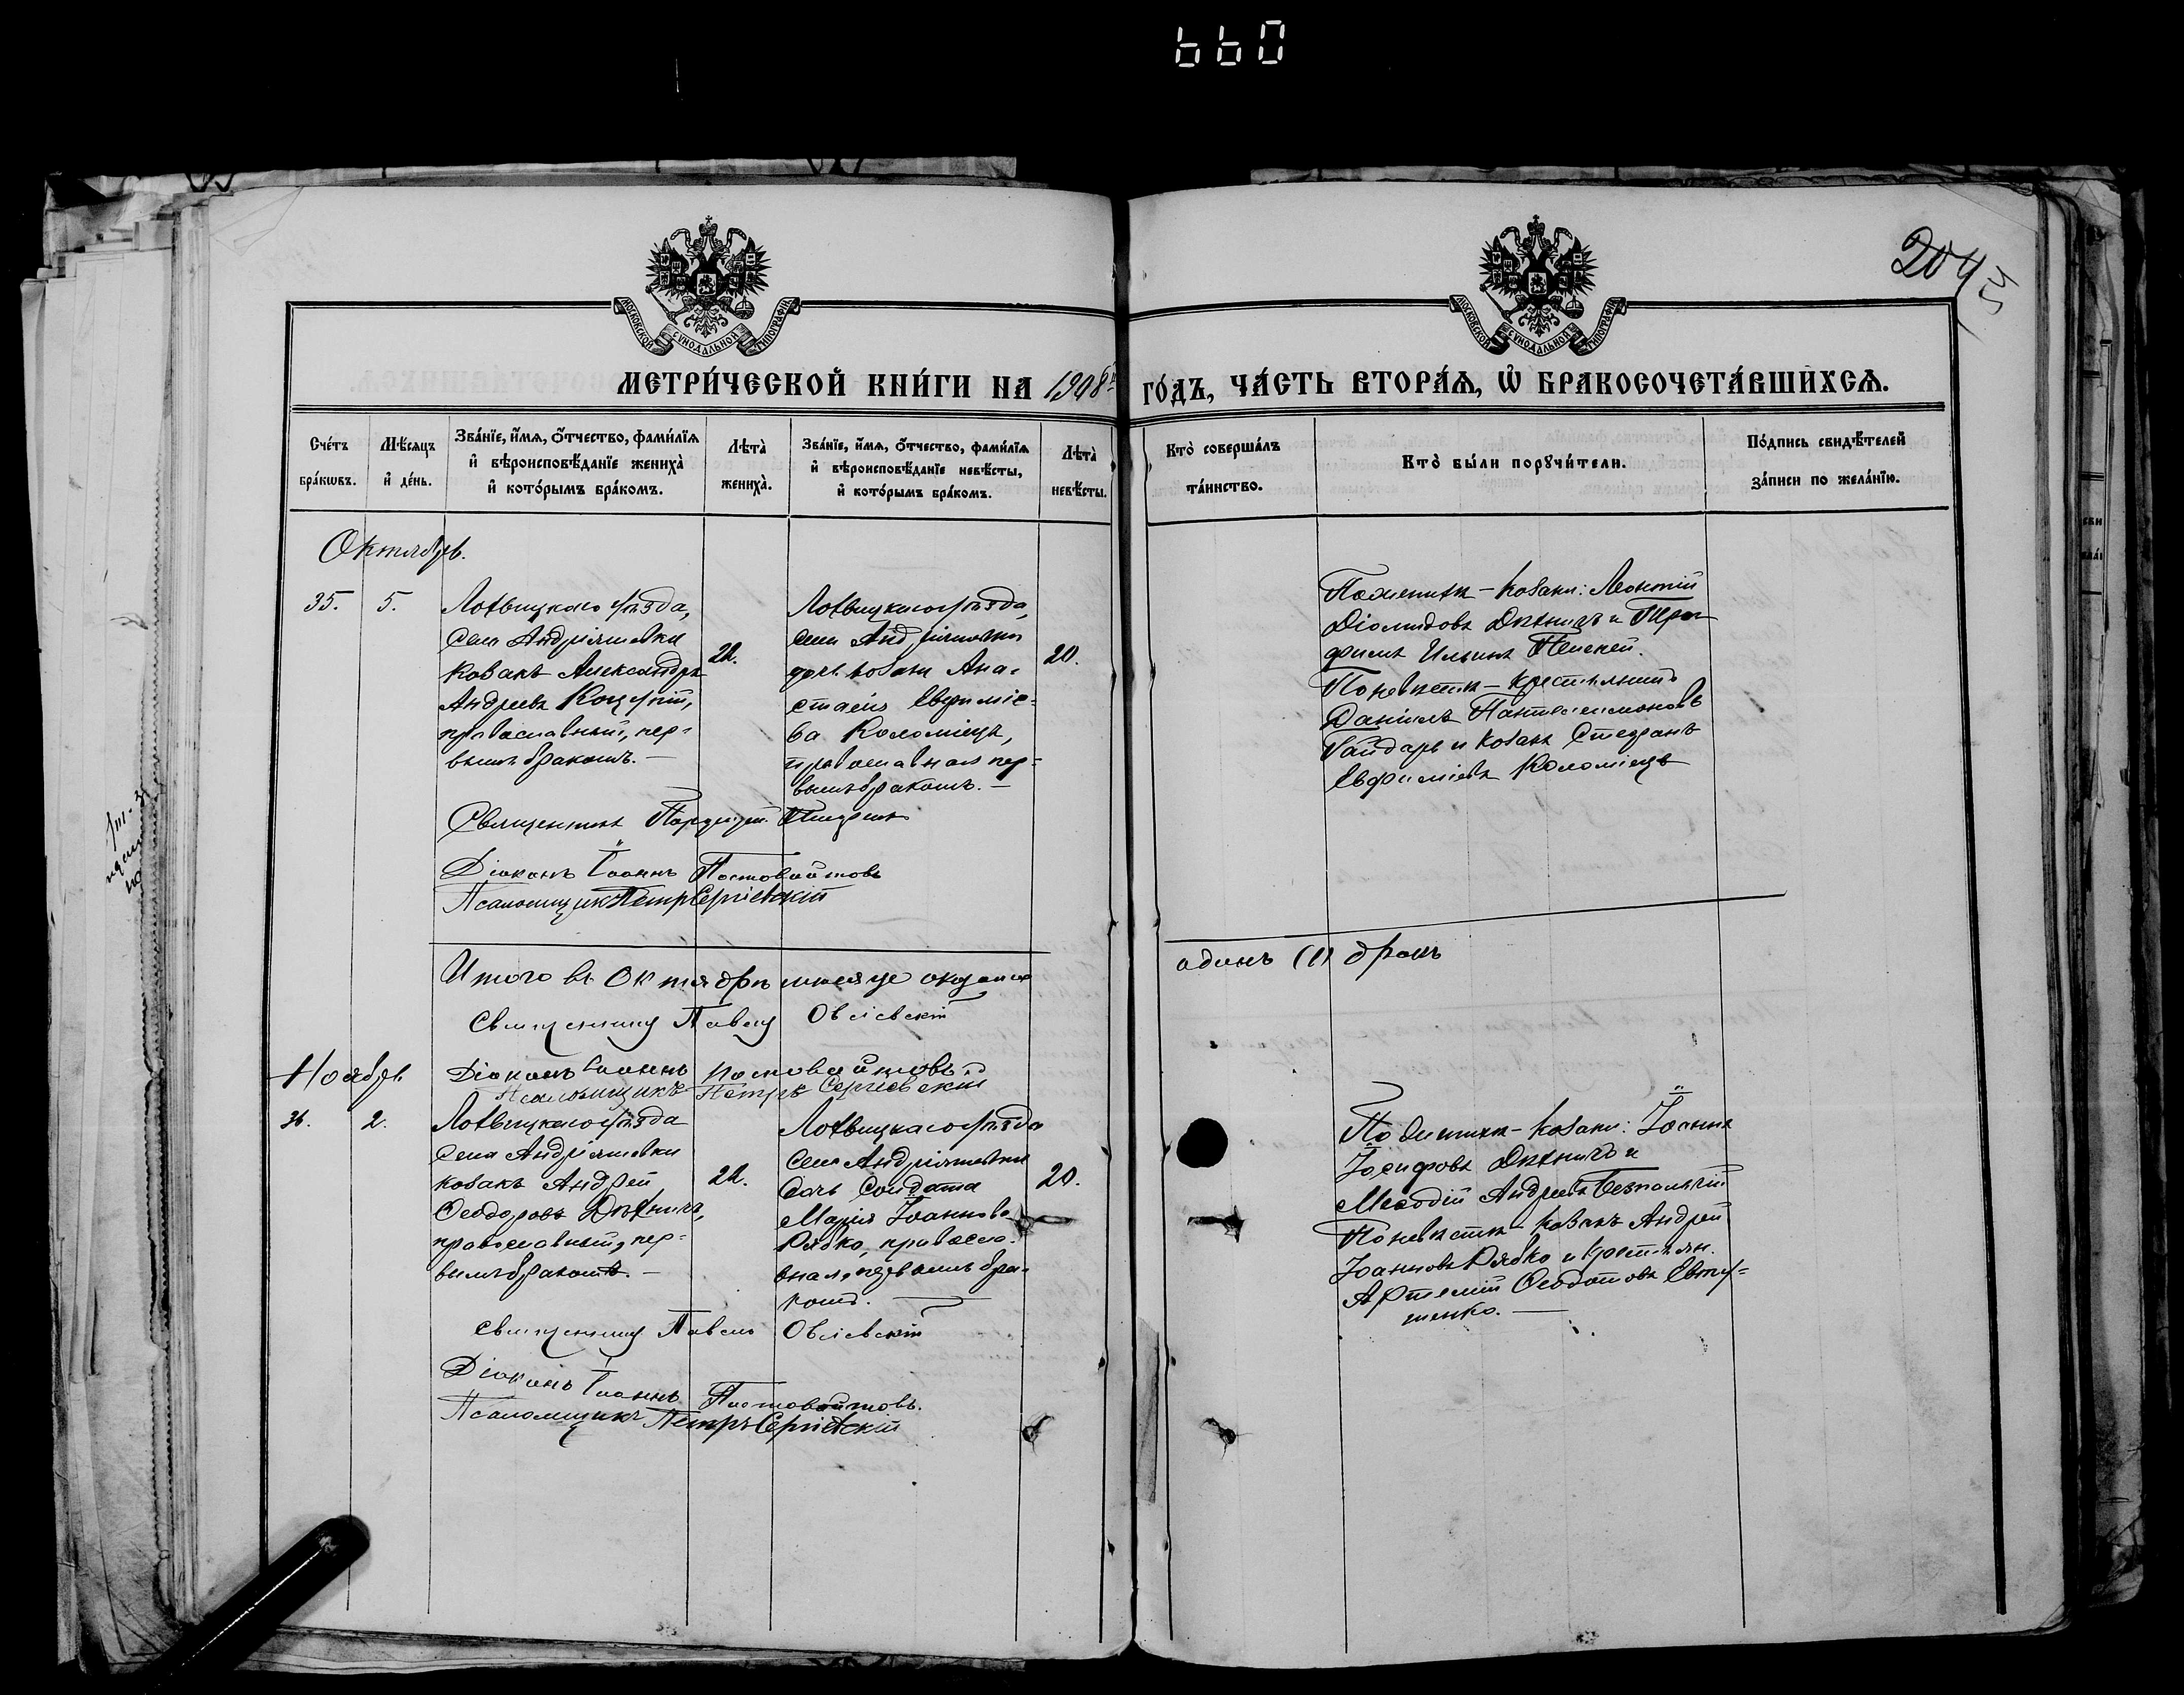 660
204
МОСКОВСКОЙ СѴНОДАЛЬНОЙ ТИПОГРАФІИ
МОСКОВСКОЙ СѴНОДАЛЬНОЙ ТИПОГРАФІИ
МЕТРИ́ЧЕСКОЙ КНИ́ГИ НА 1908й ГО́ДЪ, ЧА́СТЬ ВТОРА́Ѧ, Ѽ БРАКОСОЧЕТА́ВШИХСѦ.
Сче́тъ бра́кѡвъ.
Мѣ́сяцъ и҆ де́нь.
Зва́нїе, и҆́мѧ, ѻ҆́тчество, фами́лїѧ и҆ вѣроисповѣ́данїе жениха̀ и҆ кото́рымъ бра́комъ.
Лѣ́та̀ жениха̀.
Зва́нїе, и҆́мѧ, ѻ҆́тчество, фами́лїѧ и҆ вѣроисповѣ́данїе невѣ́сты, и҆ кото́рымъ бра́комъ.
Лѣ́та̀ невѣ́сты.
Кто̀ соверша́лъ та́инство.
Кто̀ бы́ли порꙋчи́тели.
По́дпись свидѣ́телей за́писи по жела́нїю.
Октябрь.
35.
5.
Лохвицкаго уѣзда,
села Андріяшевки
козакъ Александръ
Андреевъ
православный, пер-
вымъ бракомъ. —
22.
Лохвицкаго уѣзда,
села Андріяшевки
дочь козака Ана-
стасія Евфиміе-
ва Коломіецъ,
православная пер-
вымъ бракомъ. —
20.
По женихѣ – козаки: Леонтій
Діомидовъ Дѣхничъ и Тро-
фимъ Ильинъ
По невѣстѣ – крестьянинъ
Даніилъ Пантелеимоновъ
Гайдаръ и козакъ Стефанъ
Евфиміевъ Коломіецъ
Священникъ Порфирій
Діаконъ Іоаннъ Постовойтовъ
Псаломщикъ Петръ Сергіевскій
Итого въ Октябрѣ мѣсяце одинъ (1) бракъ
Священникъ Павелъ Овсіевскій
Ноябрь
Діаконъ Іоаннъ Постовойтовъ
Псаломщикъ Петръ Сергіевскій
36.
2.
Лохвицкаго уѣзда
села Андріяшевки
козакъ Андрей
Ѳеодоровъ Дѣхничъ,
православный, пер-
вымъ бракомъ. —
22.
Лохвицкаго уѣзда
села Андріяшевки
дочь солдата
Марія Іоаннова
Рябко, правосла-
вная, первымъ бра-
комъ. —
20.
По женихѣ – козаки: Іоаннъ
Іосифовъ Дѣхничъ и
Меѳодій Андреевъ Безпалый
По невѣстѣ – козакъ Андрей
Іоанновъ Рябко и крестьян.
Артемій Ѳеодотовъ Евту-
шенко. —
Священникъ Павелъ Овсіевскій
Діаконъ Іоаннъ Постовойтовъ.
Псаломщикъ Петръ Сергіевскій